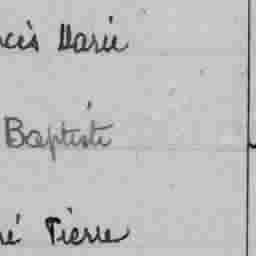 cès Marie
Baptiste
ré Pierre